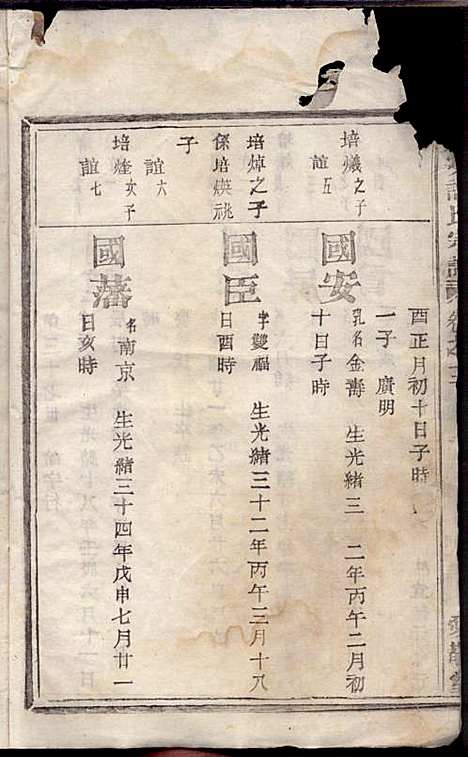 酉正月初十日子時
一子 廣明
培爔之子
誼五
國安
乳名金壽 生光緒三 二年丙午二月初
十日子時
培焯之子
係培煐祧
子
誼六
國臣
字雙福 生光緒三十二年丙午三月十八
日酉時
培煃次子
誼七
國藩
名南京 生光緒三十四年戊申七月廿一
日亥時